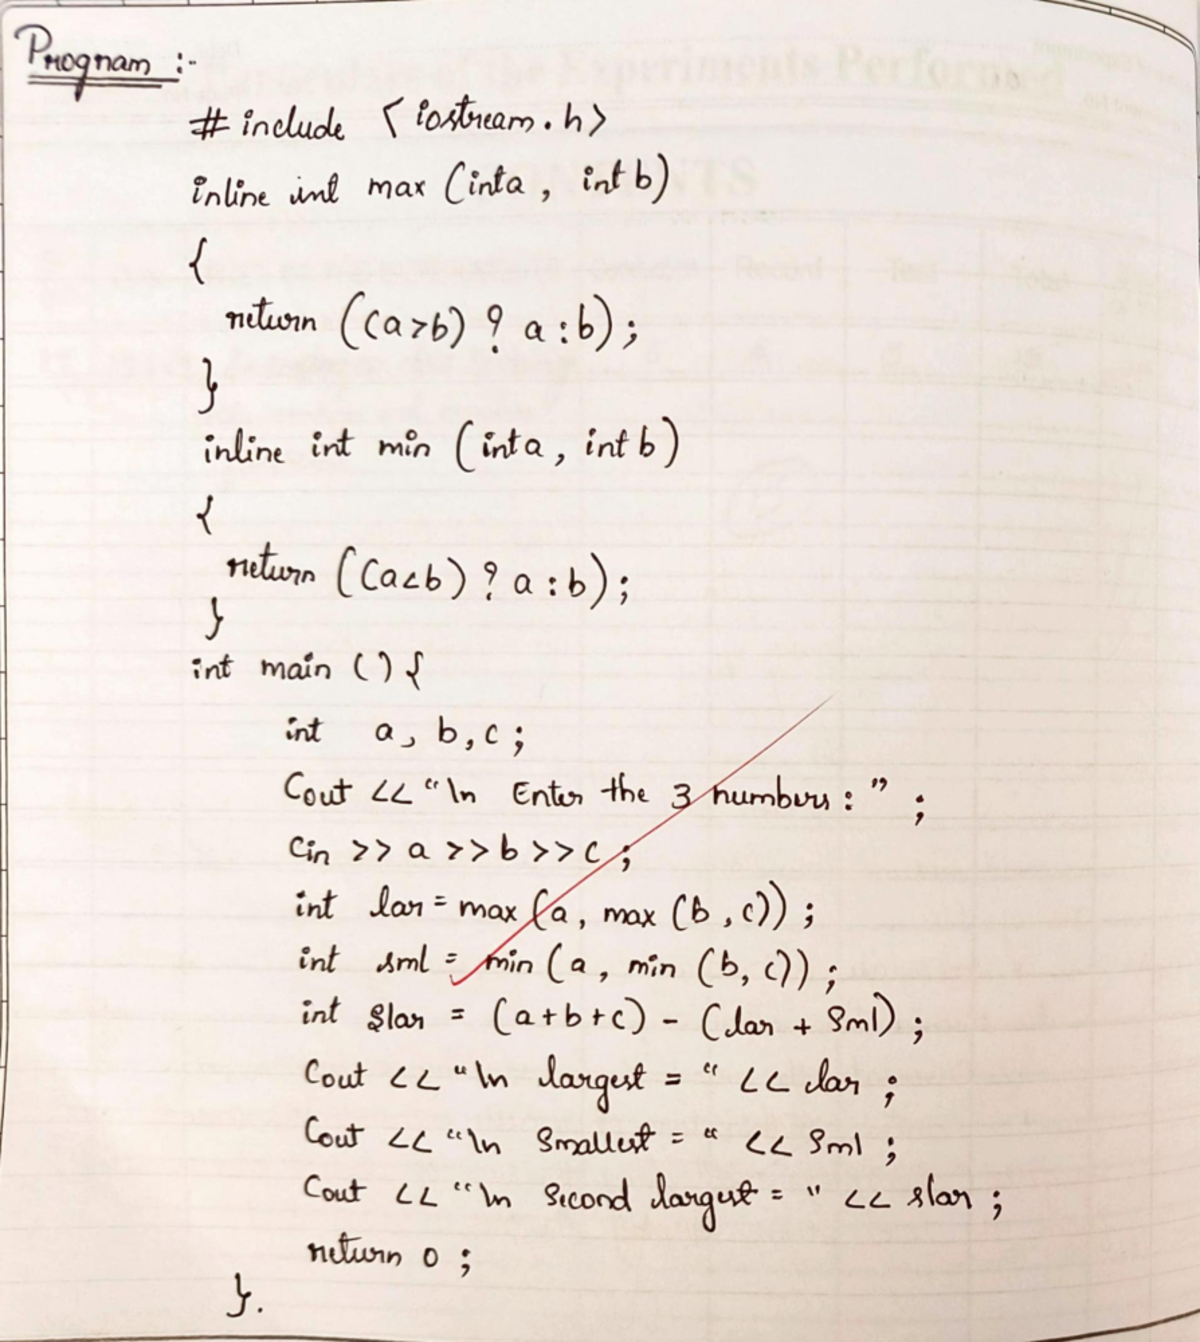 Program :-
# include <iostream.h>
inline int max (int a, int b)
{
return ((a>b) ? a : b);
}
inline int min (int a, int b)
{
return ((a<b) ? a : b);
}
int main () {
int a, b, c;
Cout << "\n Enter the 3 numbers: ";
Cin >> a >> b >> c;
int lar = max (a, max (b, c));
int sml = min (a, min (b, c));
int slar = (a+b+c) - (lar + sml);
Cout << "\n largest = " << lar;
Cout << "\n Smallest = " << sml;
Cout << "\n Second largest = " << slar;
return 0;
}.